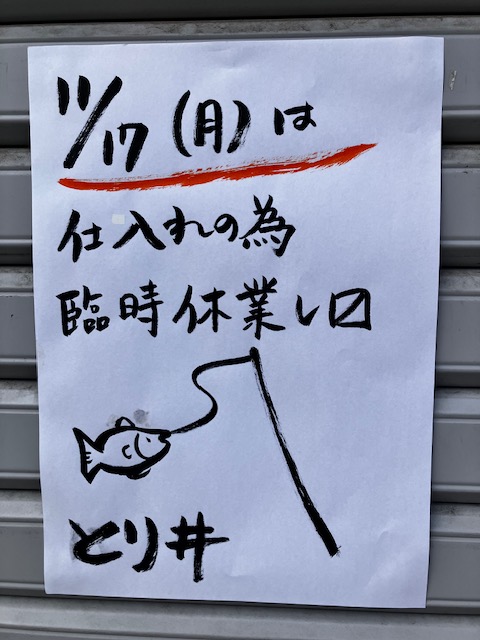 11/17(月)は
仕入れの為
臨時休業し〼
とり井